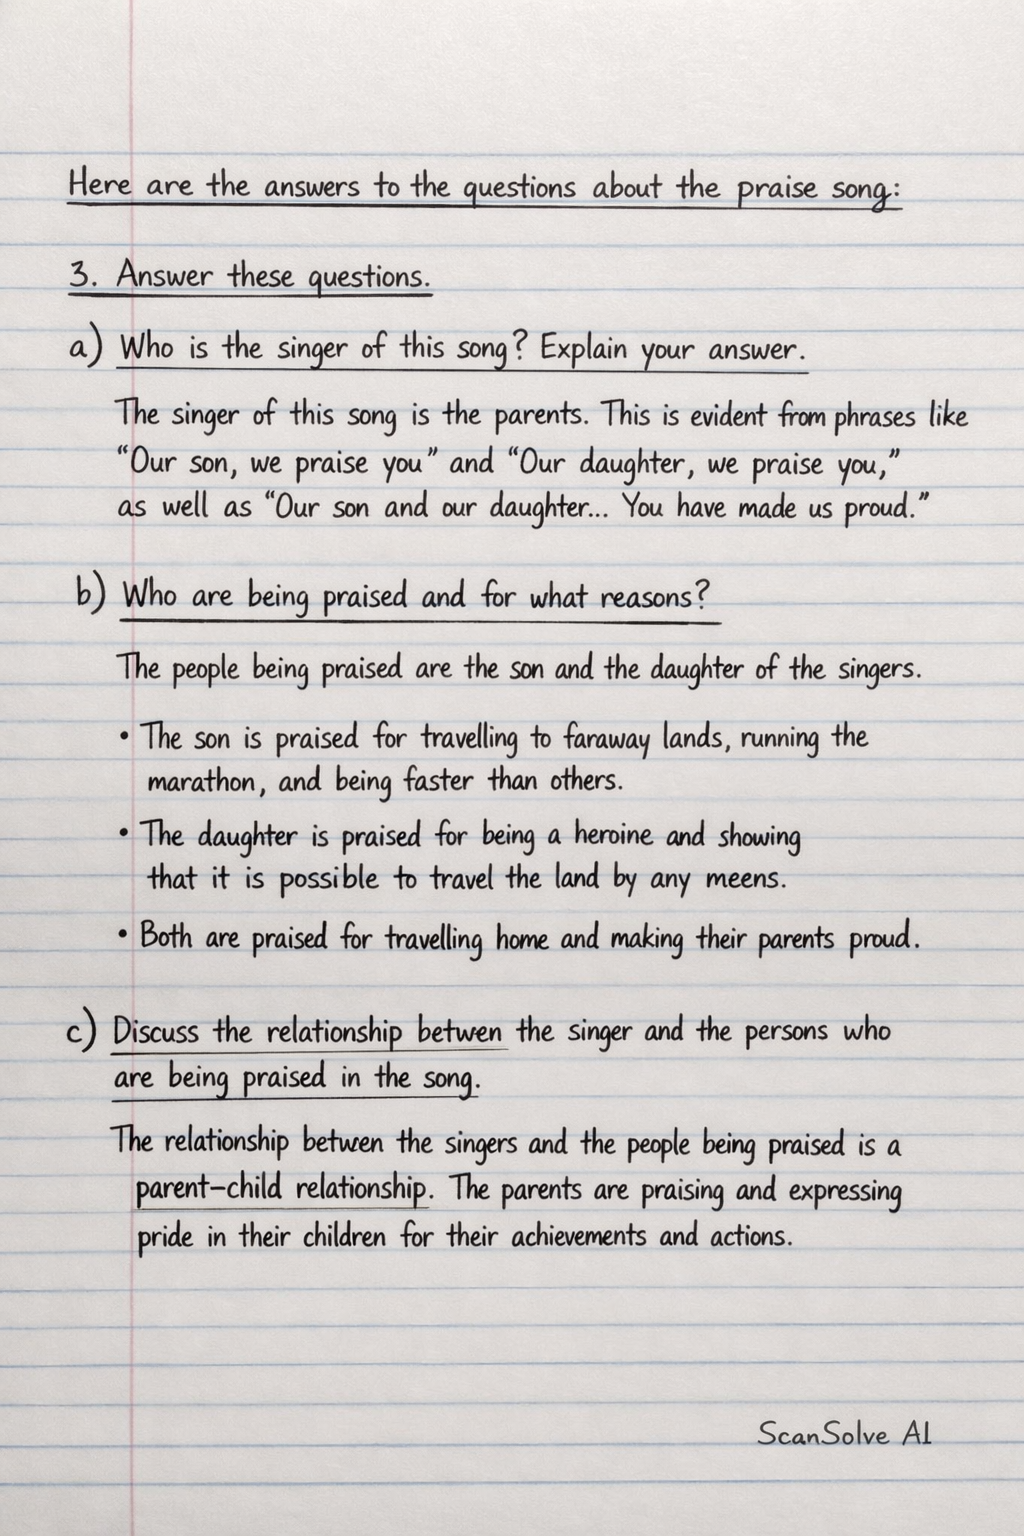 Here are the answers to the questions about the praise song:
3. Answer these questions.
a) Who is the singer of this song? Explain your answer.
The singer of this song is the parents. This is evident from phrases like
“Our son, we praise you” and “Our daughter, we praise you,”
as well as “Our son and our daughter... You have made us proud.”
b) Who are being praised and for what reasons?
The people being praised are the son and the daughter of the singers.
• The son is praised for travelling to faraway lands, running the
marathon, and being faster than others.
• The daughter is praised for being a heroine and showing
that it is possible to travel the land by any meens.
• Both are praised for travelling home and making their parents proud.
c) Discuss the relationship betwen the singer and the persons who
are being praised in the song.
The relationship betwen the singers and the people being praised is a
parent–child relationship. The parents are praising and expressing
pride in their children for their achievements and actions.
ScanSolve AI